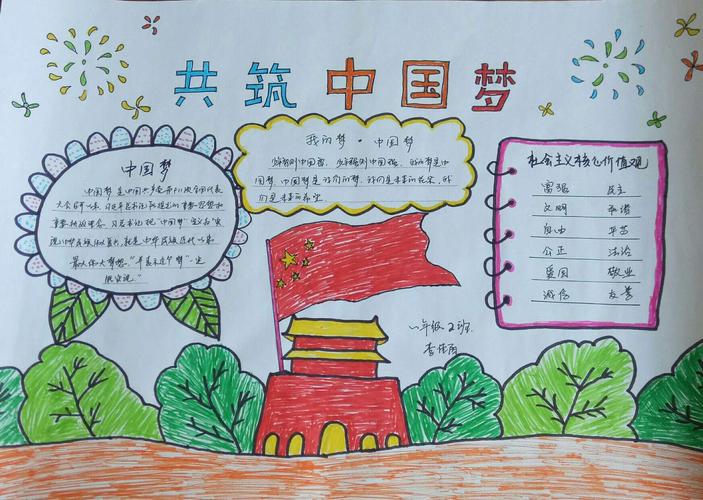 共筑中国梦
中国梦
中国梦是中国共产党第十八次全国代表
大会召开以来,习近平总书记所提出的重要思想和
重要执政理念。习总书记把"中国梦"定义为"实
现中华民族伟大复兴,就是中华民族近代以来
最伟大梦想。"并表示这个梦"一定
能实现。"
我的梦·中国梦
少年强则中国强,我的梦是中
国梦,中国梦是我们的梦,我们是未来的花朵,我
们是未来的希望
社会主义核心价值观
富强 民主
文明 和谐
自由 平等
公正 法治
爱国 敬业
诚信 友善
八年级2班